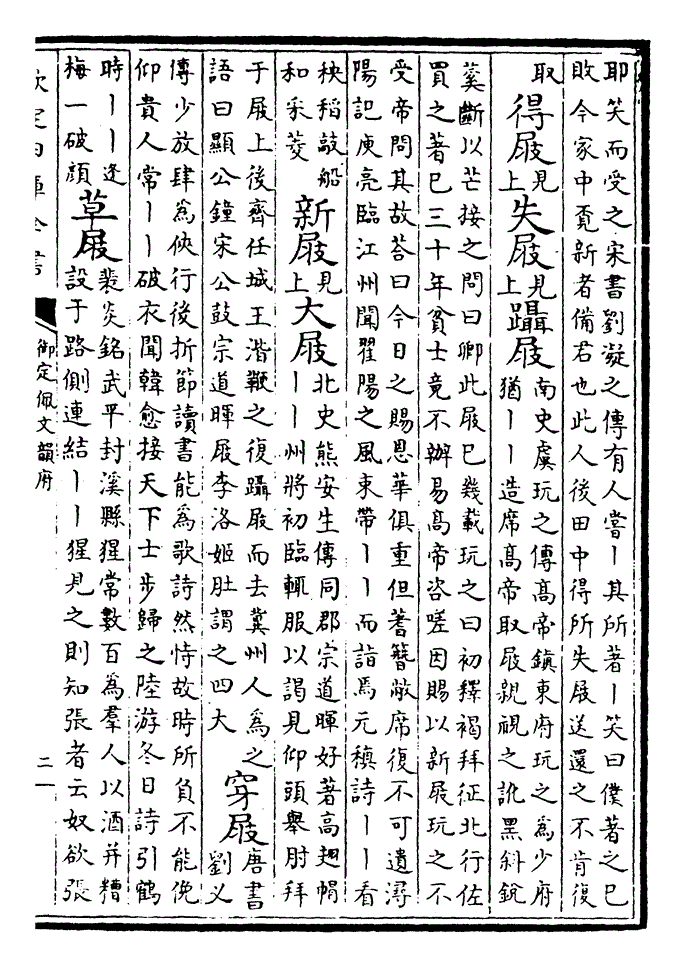 耶笑而受之宋書劉凝之傳有人嘗丨其所著丨笑曰僕著之已
敗今家中覓新者備君也此人後田中得所失屐送還之不肯復
取
得屐
見上
失屐
見上
躡屐
南史虞玩之傳髙帝鎮東府玩之為少府
猶丨丨造席髙帝取屐親視之訛黑斜銳
蒵斷以芒接之問曰卿此屐已幾載玩之曰初釋褐拜征北行佐
買之著已三十年貧士竟不辦易髙帝咨嗟因賜以新屐玩之不
受帝問其故荅曰今日之賜恩華俱重但蓍簪敝席復不可遺潯
陽記庾亮臨江州聞翟陽之風束帶丨丨而詣焉元稹詩丨丨看
秧稻敲船
和采菱
新屐
見上
大屐
北史熊安生傳同郡宗道暉好著高翅帽
丨丨州將初臨輒服以謁見仰頭舉肘拜
于屐上後齊任城王湝鞭之復躡屐而去冀州人為之
語曰顯公鐘宋公鼓宗道暉屐李洛姬肚謂之四大
穿屐
唐書
劉乂
傳少放肆為俠行後折節讀書能為歌詩然恃故時所負不能俛
仰貴人常丨丨破衣聞韓愈接天下士步歸之陸游冬日詩引鶴
時丨丨逢
梅一破顔
草屐
裴炎銘武平封溪縣猩常數百為羣人以酒并糟
設于路側連結丨丨猩見之則知張者云奴欲張
欽定四庫全書
御定佩文韻府
二一